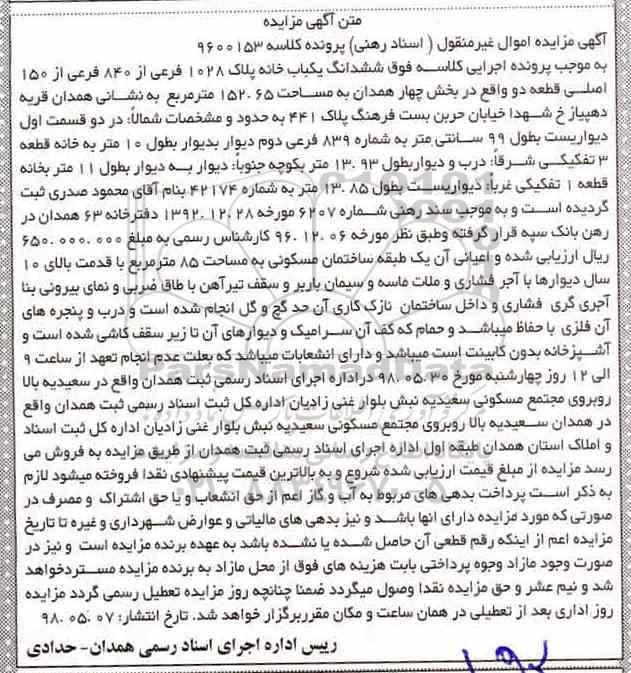 متن آگهی مزایده
آگهی مزایده اموال غیرمنقول ( اسناد رهنی) پرونده کلاسه ۹۶۰۰۱۵۳
به موجب پرونده اجرایی کلاسه فوق ششدانگ یکباب خانه پلاک ۱۰۲۸ فرعی از ۸۴۰ فرعی از ۱۵۰
اصلی قطعه دو واقع در بخش چهار همدان به مساحت ۱۵۲.۶۵ مترمربع به نشانی همدان قریه
دهپیاز خ شهدا خیابان حربن بست فرهنگ پلاک ۴۴۱ به حدود و مشخصات شمالاً: در دو قسمت اول
دیواریست بطول ۹۹ سانتی متر به شماره ۸۳۹ فرعی دوم دیوار بدیوار بطول ۱۰ متر به خانه قطعه
۳ تفکیکی شرقاً: درب و دیواربطول ۱۳.۹۳ متر بکوچه جنوباً: دیوار به دیوار بطول ۱۱ متر بخانه
قطعه ۱ تفکیکی غرباً: دیواریست بطول ۱۳.۸۵ متر به شماره ۴۲۱۷۴ بنام آقای محمود صدری ثبت
گردیده است و به موجب سند رهنی شماره ۶۲۰۷ مورخه ۱۳۹۲.۱۲.۲۸ دفترخانه ۶۳ همدان در
رهن بانک سپه قرار گرفته وطبق نظر مورخه ۹۶.۱۲.۰۶ کارشناس رسمی به مبلغ ۶۵۰.۰۰۰.۰۰۰
ریال ارزیابی شده و اعیانی آن یک طبقه ساختمان مسکونی به مساحت ۸۵ مترمربع با قدمت بالای ۱۰
سال دیوارها با آجر فشاری و ملات ماسه و سیمان باربر و سقف تیرآهن با طاق ضربی و نمای بیرونی بنا
آجری گری فشاری و داخل ساختمان نازک کاری آن حد گچ و گل انجام شده است و درب و پنجره های
آن فلزی با حفاظ میباشد و حمام که کف آن سرامیک و دیوارهای آن تا زیر سقف کاشی شده است و
آشپزخانه بدون کابینت است میباشد و دارای انشعابات میباشد که بعلت عدم انجام تعهد از ساعت ۹
الی ۱۲ روز چهارشنبه مورخ ۹۸.۰۵.۳۰ دراداره اجرای اسناد رسمی ثبت همدان واقع در سعیدیه بالا
روبروی مجتمع مسکونی سعیدیه نبش بلوار غنی زادیان اداره کل ثبت اسناد رسمی ثبت همدان واقع
در همدان سعیدیه بالا روبروی مجتمع مسکونی سعیدیه نبش بلوار غنی زادیان اداره کل ثبت اسناد
و املاک استان همدان طبقه اول اداره اجرای اسناد رسمی ثبت همدان از طریق مزایده به فروش می
رسد مزایده از مبلغ قیمت ارزیابی شده شروع و به بالاترین قیمت پیشنهادی نقدا فروخته میشود لازم
به ذکر است پرداخت بدهی های مربوط به آب و گاز اعم از حق انشعاب و یا حق اشتراک و مصرف در
صورتی که مورد مزایده دارای انها باشد و نیز بدهی های مالیاتی و عوارض شهرداری و غیره تا تاریخ
مزایده اعم از اینکه رقم قطعی آن حاصل شده یا نشده باشد به عهده برنده مزایده است و نیز در
صورت وجود مازاد وجوه پرداختی بابت هزینه های فوق از محل مازاد به برنده مزایده مستردخواهد
شد و نیم عشر و حق مزایده نقدا وصول میگردد ضمنا چنانچه روز مزایده تعطیل رسمی گردد مزایده
روز اداری بعد از تعطیلی در همان ساعت و مکان مقرربرگزار خواهد شد. تاریخ انتشار: ۹۸.۰۵.۰۷
رییس اداره اجرای اسناد رسمی همدان- حدادی
ParsNamadData